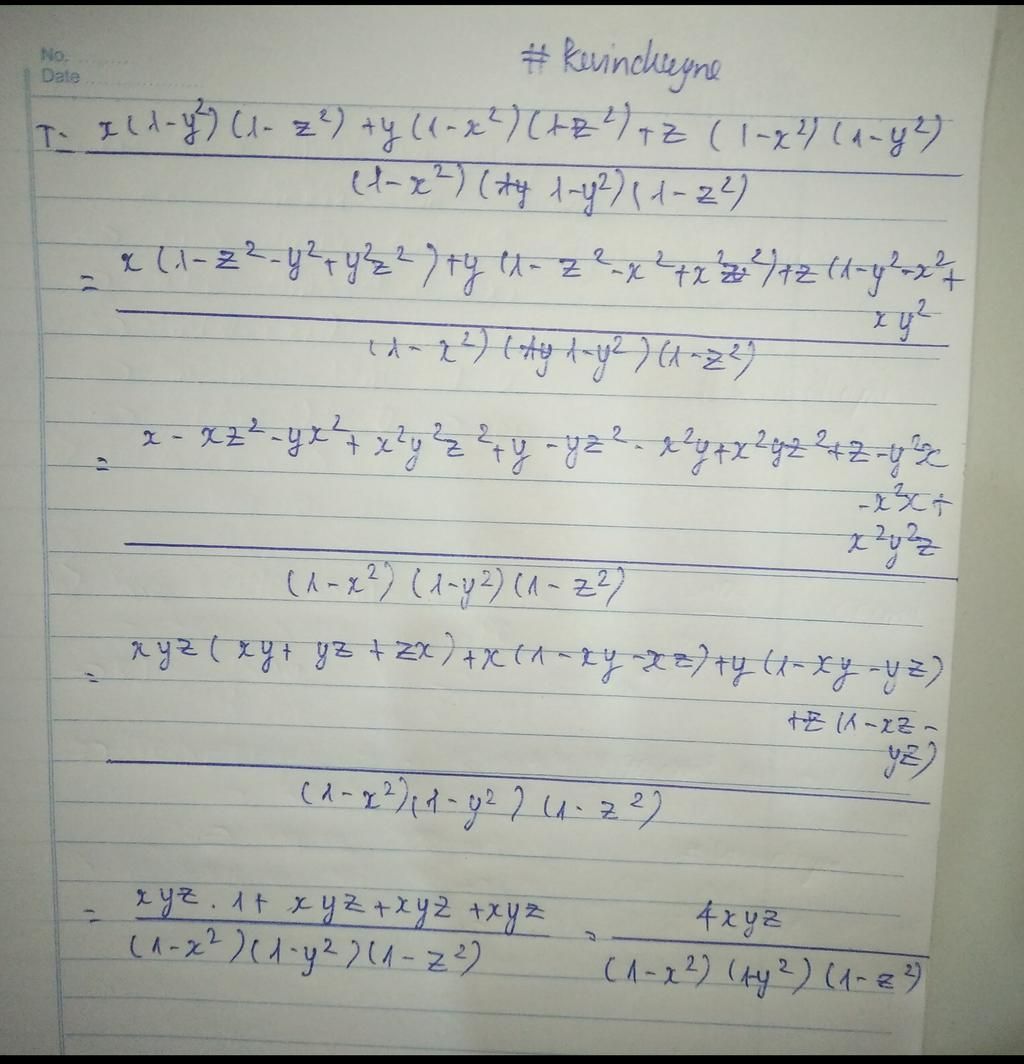 No.
Date
# Kevinchwyne
T = x(1-y²)(1-z²)+y(1-x²)(1-z²)+z(1-x²)(1-y²)
(1-x²)(1-y²)(1-z²)
= x(1-z²-y²+y²z²)+y(1-z²-x²+x²z²)+z(1-y²-x²+
xy²
(1-x²)(1-y²)(1-z²)
= x-xz²-yx²+x²y²z²+y-yz²-x²y+x²yz²+z-y²x
-x²x+
x²y²z
(1-x²)(1-y²)(1-z²)
= xyz(xy+yz+zx)+x(1-xy-xz)+y(1-xy-yz)
+z(1-xz-
yz)
(1-x²)(1-y²)(1-z²)
= xyz.1+xyz+xyz+xyz = 4xyz
(1-x²)(1-y²)(1-z²) (1-x²)(1-y²)(1-z²)